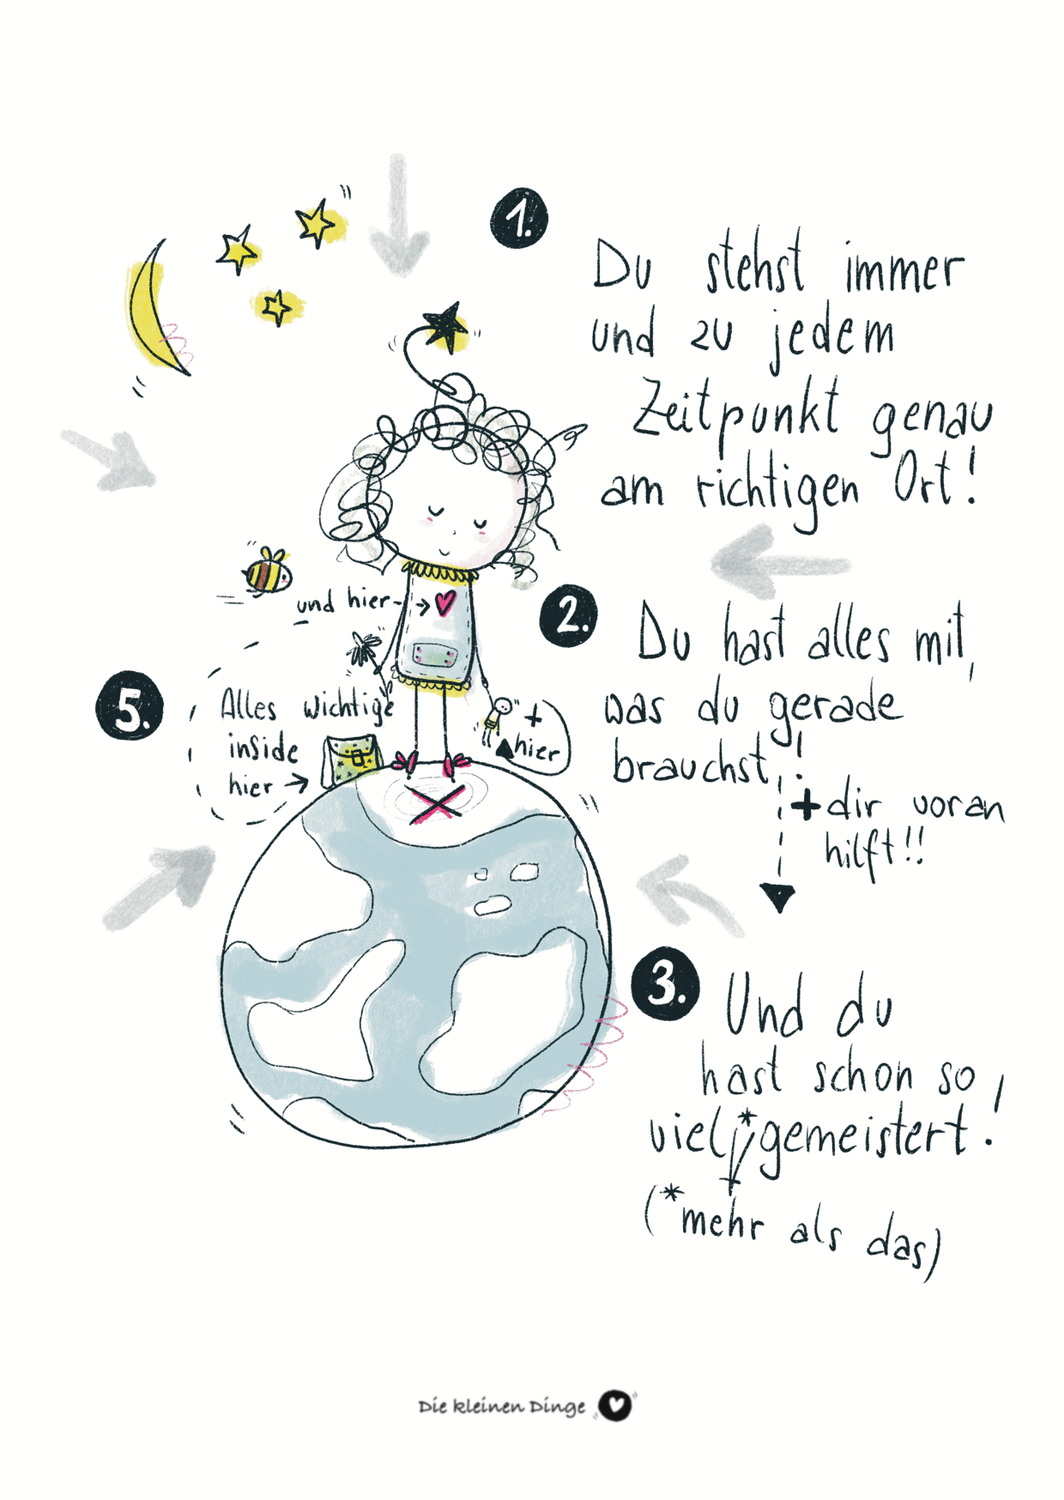 1.
Du stehst immer
und zu jedem
Zeitpunkt genau
am richtigen Ort!
2.
Du hast alles mit,
was du gerade
brauchst!
+ dir voran
hilft!!
3.
Und du
hast schon so
viel* gemeistert!
(*mehr als das)
5.
Alles wichtige
inside
hier →
und hier- →
+
hier
Die kleinen Dinge